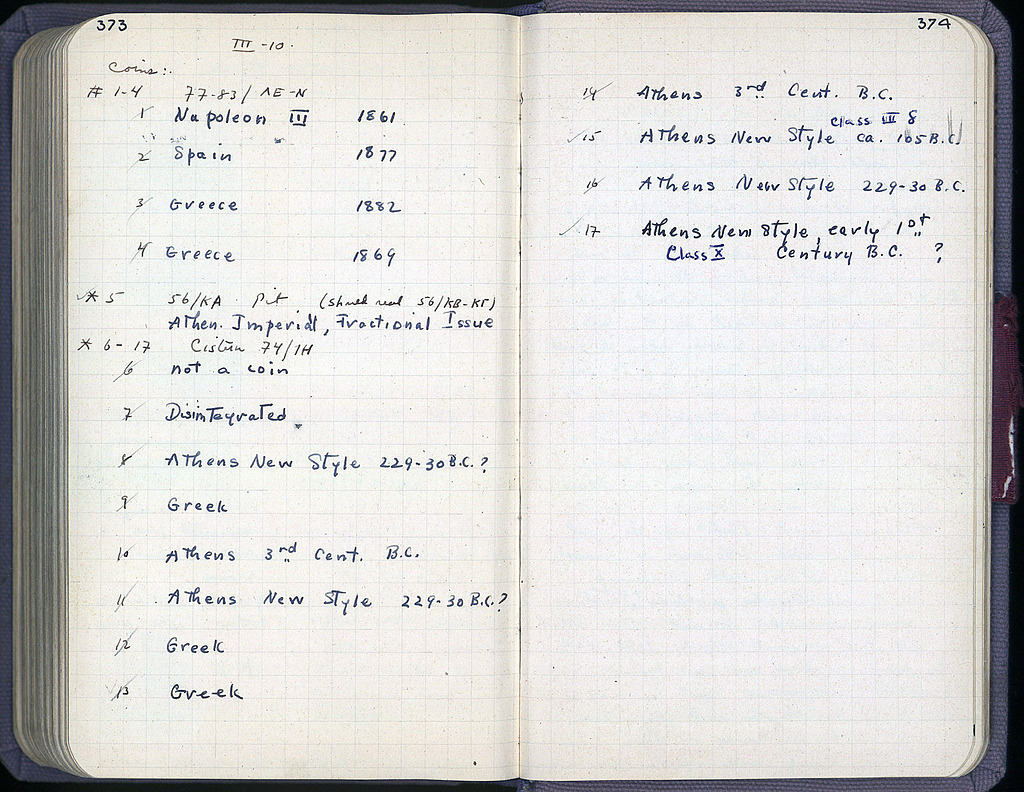 373
III-10.
Coins:
# 1-4 77-83/ΛΕ-Ν
1 Napoleon III 1861
2 Spain 1877
3 Greece 1882
4 Greece 1869
* 5 56/ΚΑ Pit (56/ΚΒ-ΚΓ)
Athen. Imperial, Fractional Issue
* 6-17 Cistern 74/ΙΗ
6 not a coin
7 Disintegrated.
8 Athens New Style 229-30 B.C.?
9 Greek
10 Athens 3rd Cent. B.C.
11 Athens New Style 229-30 B.C.?
12 Greek
13 Greek
374
14 Athens 3rd Cent. B.C.
Class III 8
15 Athens New Style ca. 105 B.C.
16 Athens New Style 229-30 B.C.
17 Athens New Style, early 1st
Class X Century B.C. ?